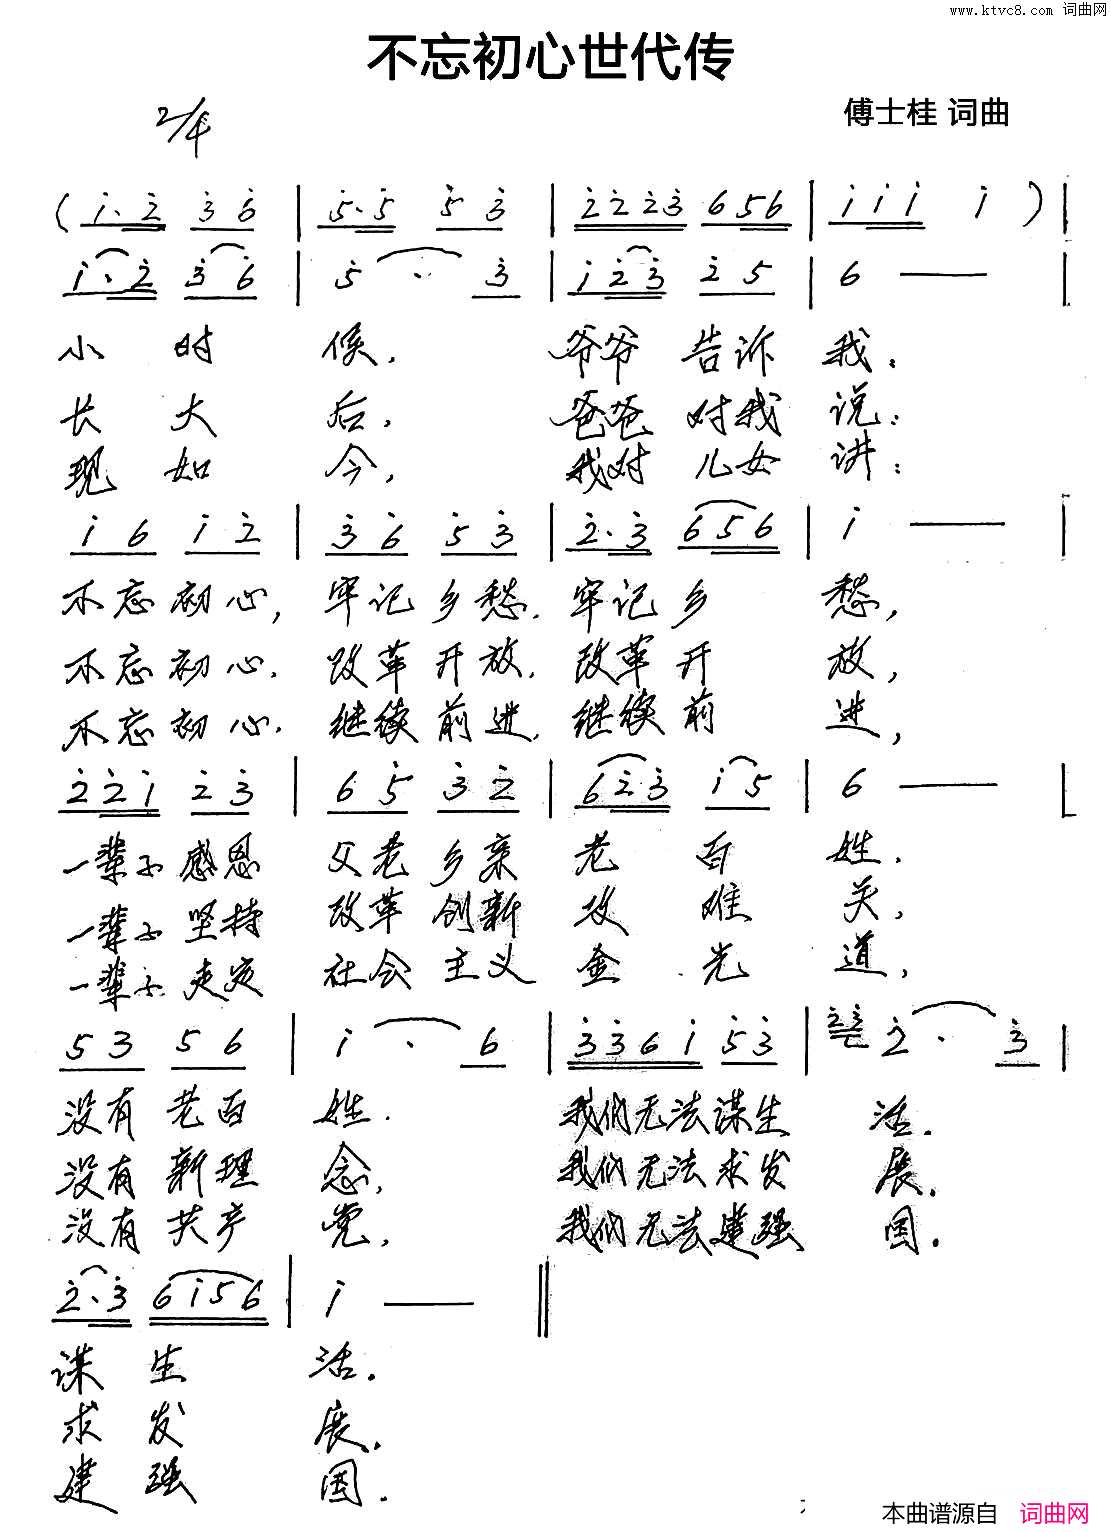 www.ktvc8.com 词曲网
不忘初心世代传
2/4
傅士桂 词曲
( i· 2 3 6 | 5· 5 5 3 | 2 2 2 3 6 5 6 | i i i i ) |
i· 2 3 6 | 5 · 3 | i 2 3 2 5 | 6 — |
小 时 候, 爷爷 告 诉 我:
长 大 后, 爸爸 对 我 说:
现 如 今, 我对 儿 女 讲:
i 6 i 2 | 3 6 5 3 | 2· 3 6 5 6 | i — |
不忘初心, 牢记乡愁. 牢记乡 愁,
不忘初心. 改革开放. 改革开 放,
不忘初心. 继续前进. 继续前 进,
2 2 i 2 3 | 6 5 3 2 | 6 2 3 i 5 | 6 — |
一辈子感恩 父老乡亲 老 百 姓.
一辈子坚持 改革创新 攻 难 关,
一辈子走定 社会主义 金 光 道,
5 3 5 6 | i · 6 | 3 3 6 i 5 3 | 2 3 2 · 3 |
没有老百 姓. 我们无法谋生 活.
没有新理 念, 我们无法求发 展.
没有共产 党, 我们无法建强 国.
2· 3 6 i 5 6 | i — ‖
谋 生 活.
求 发 展.
建 强 国.
本曲谱源自 词曲网